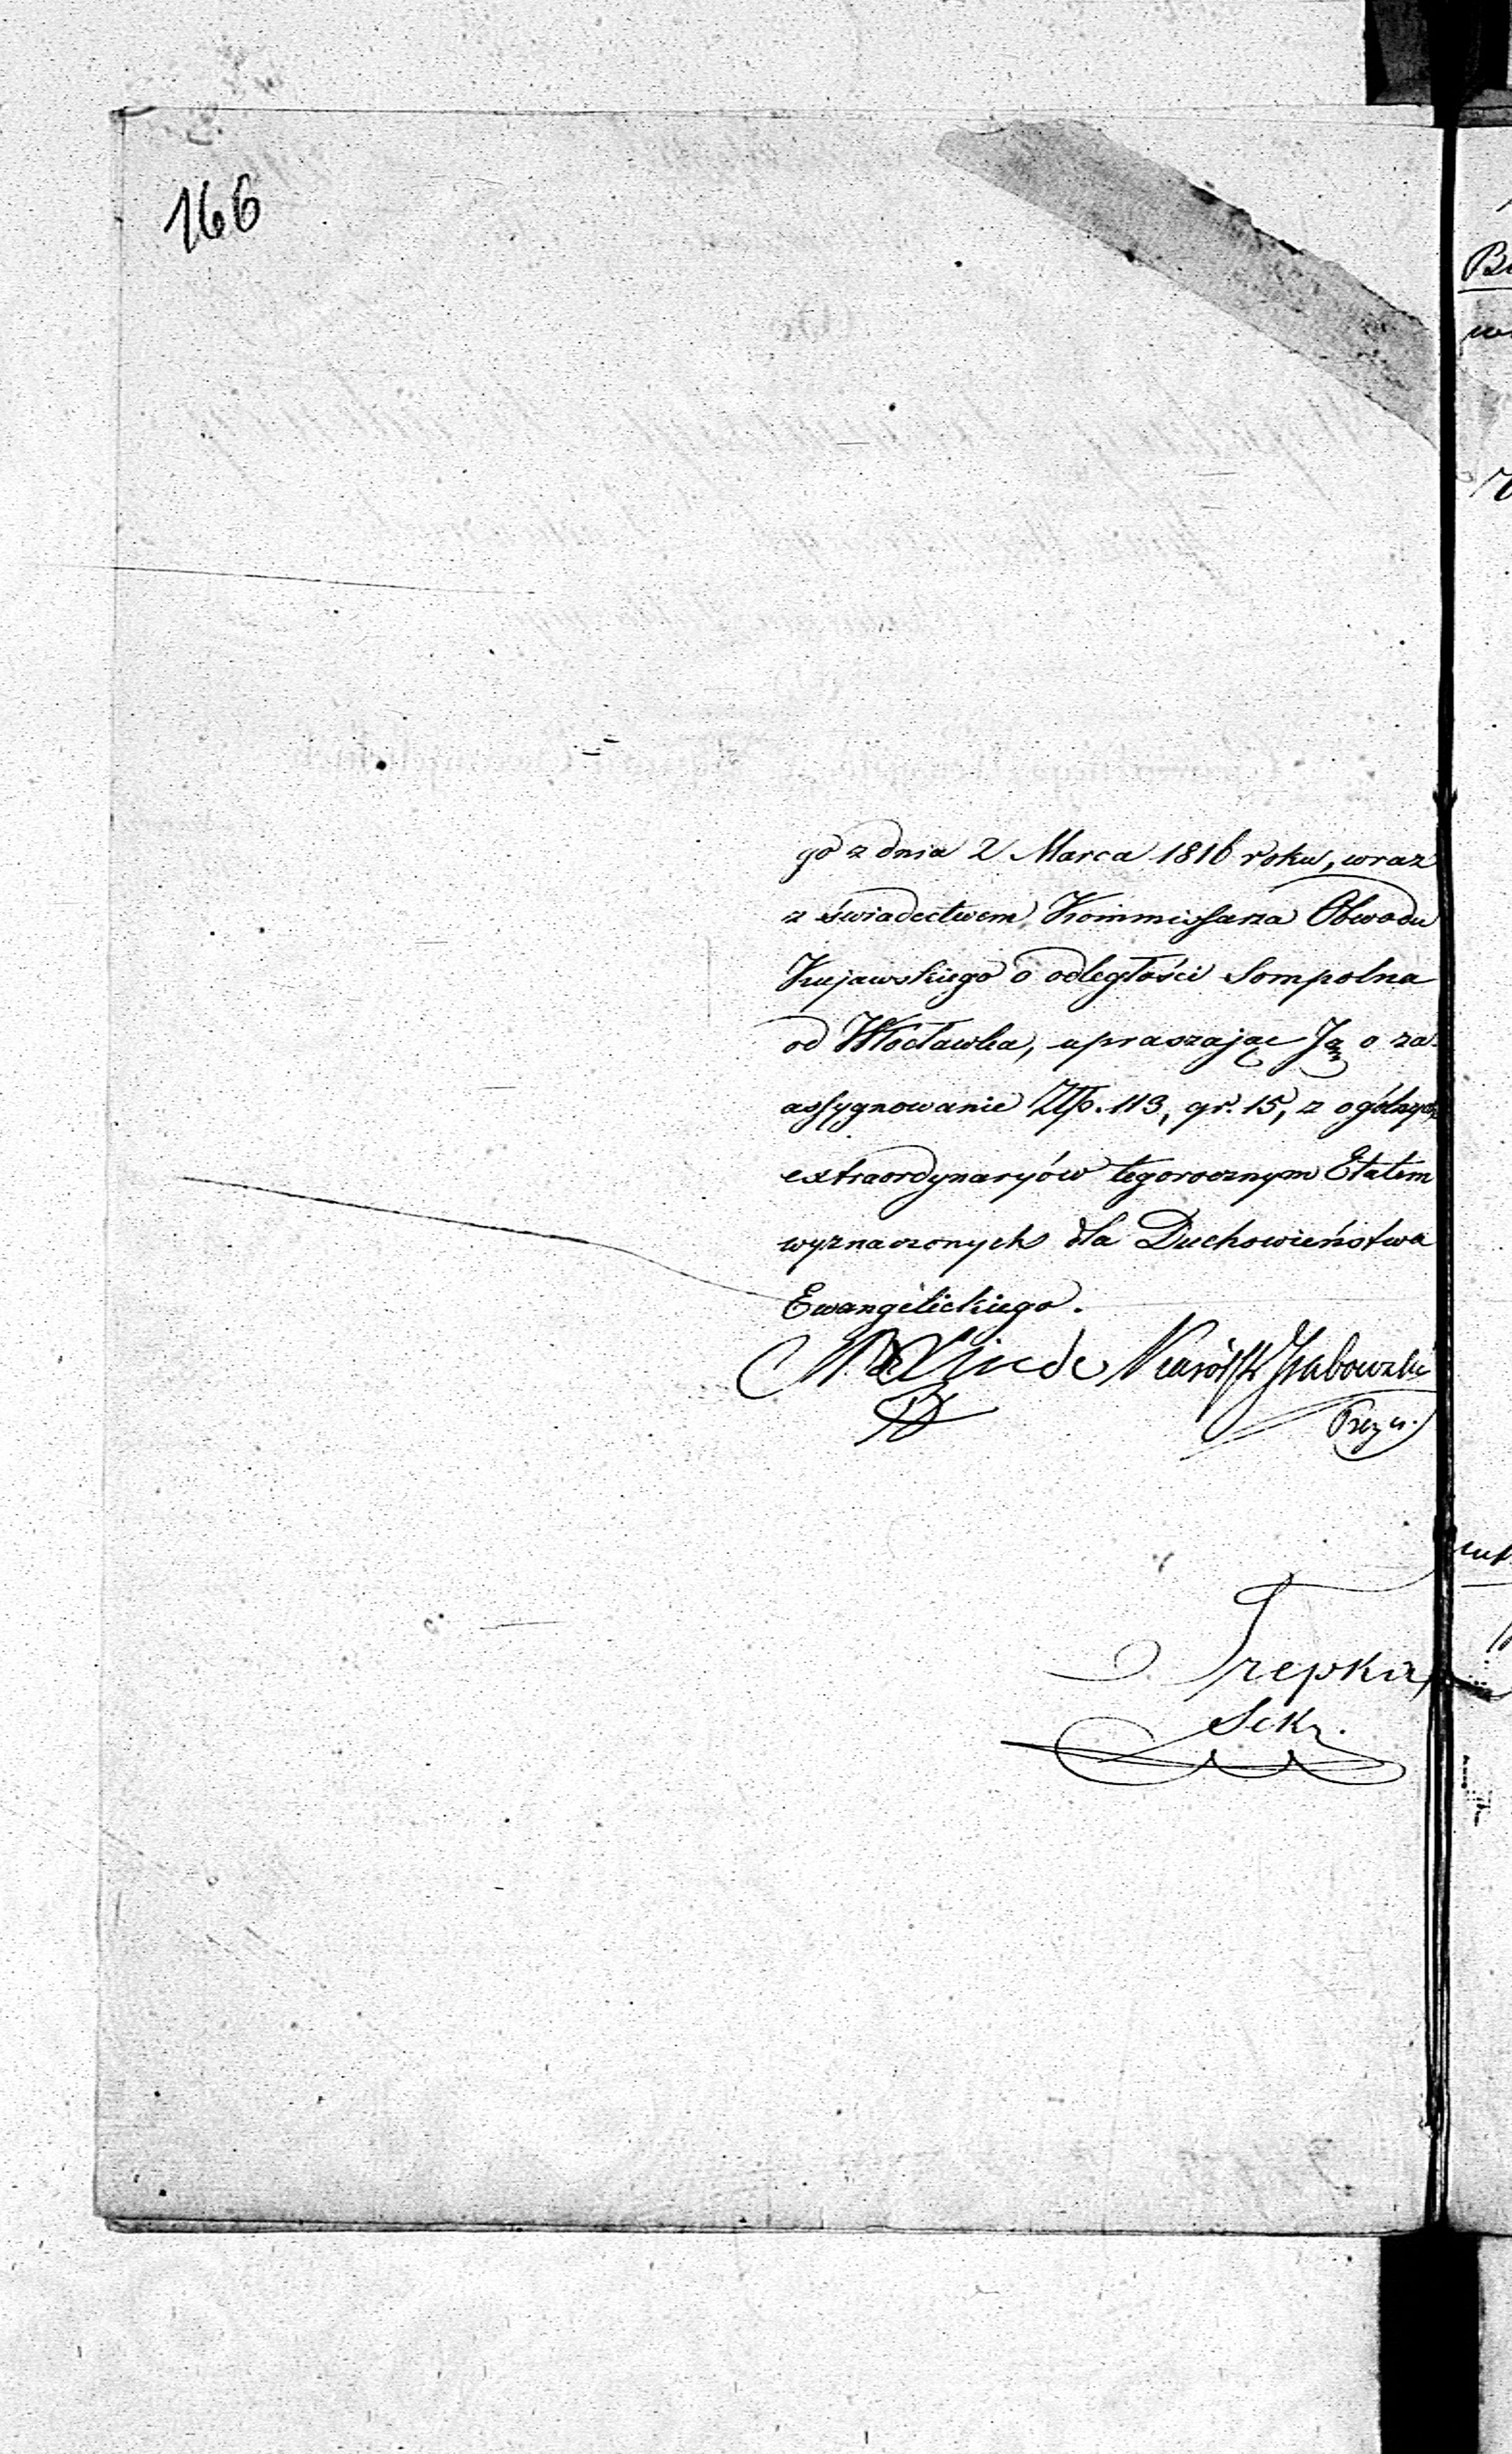 166
go z dnia 2 Marca 1816 roku, wraz
z świadectwem Kommissarza Obwodu
Kujawskiego o odległości Sompolna
od Włocławka, upraszając Ją o za-
assygnowanie Złp. 113, gr. 15, z ogólnych
extraordynaryów tegorocznym Etatem
wyznaczonych dla Duchowieństwa
Ewangelickiego.
Linde Grabowski
Prezes.
Trepka
Sekr.